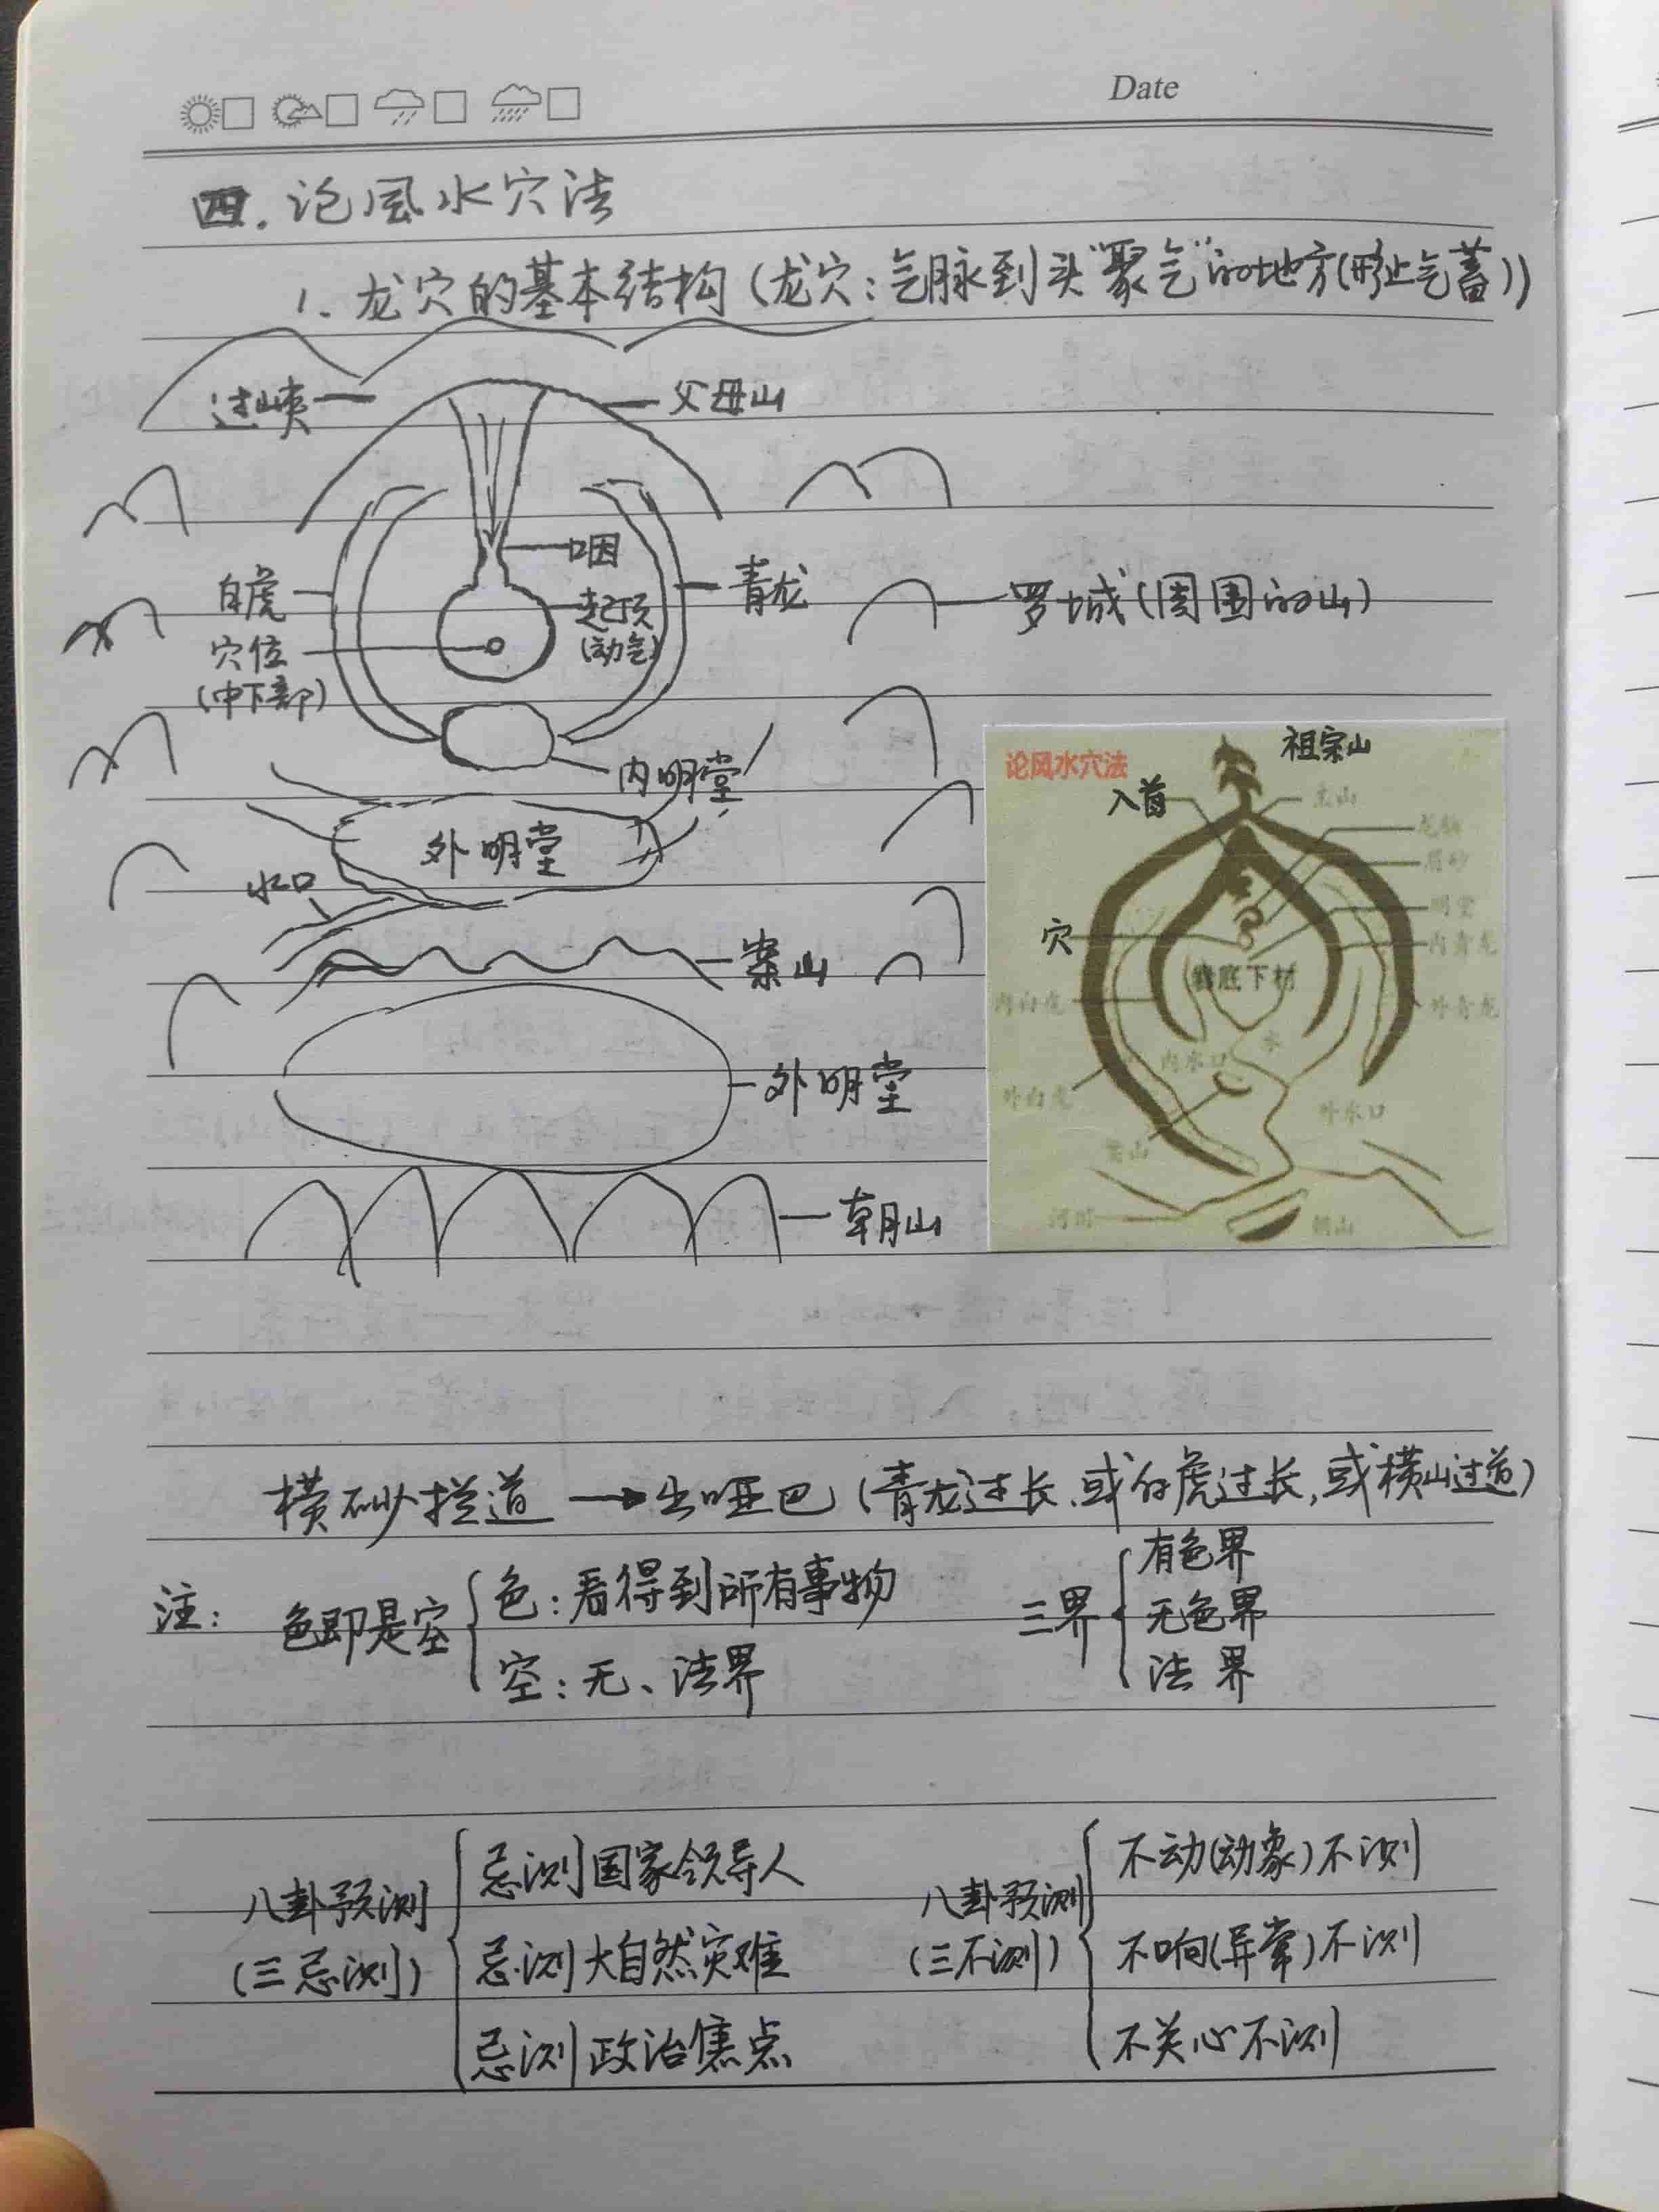 Date
四. 论风水穴法
1. 龙穴的基本结构(龙穴:气脉到头"聚气"的地方(形止气蓄))
过峡
父母山
咽
白虎
青龙
起顶
(动气)
罗城(周围的山)
穴位
(中下部)
内明堂
外明堂
水口
案山
外明堂
朝山
论风水穴法
祖宗山
入首
主山
龙脑
眉砂
明堂
穴
内青龙
内白虎
外青龙
内水口
水
外白虎
外水口
案山
河川
朝山
横砂拦道→出哑巴(青龙过长、或白虎过长,或横山过道)
注: 色即是空
色:看得到所有事物
空:无、法界
三界
有色界
无色界
法界
八卦预测
(三忌测)
忌测国家领导人
忌测大自然灾难
忌测政治焦点
八卦预测
(三不测)
不动(动象)不测
不响(异常)不测
不关心不测